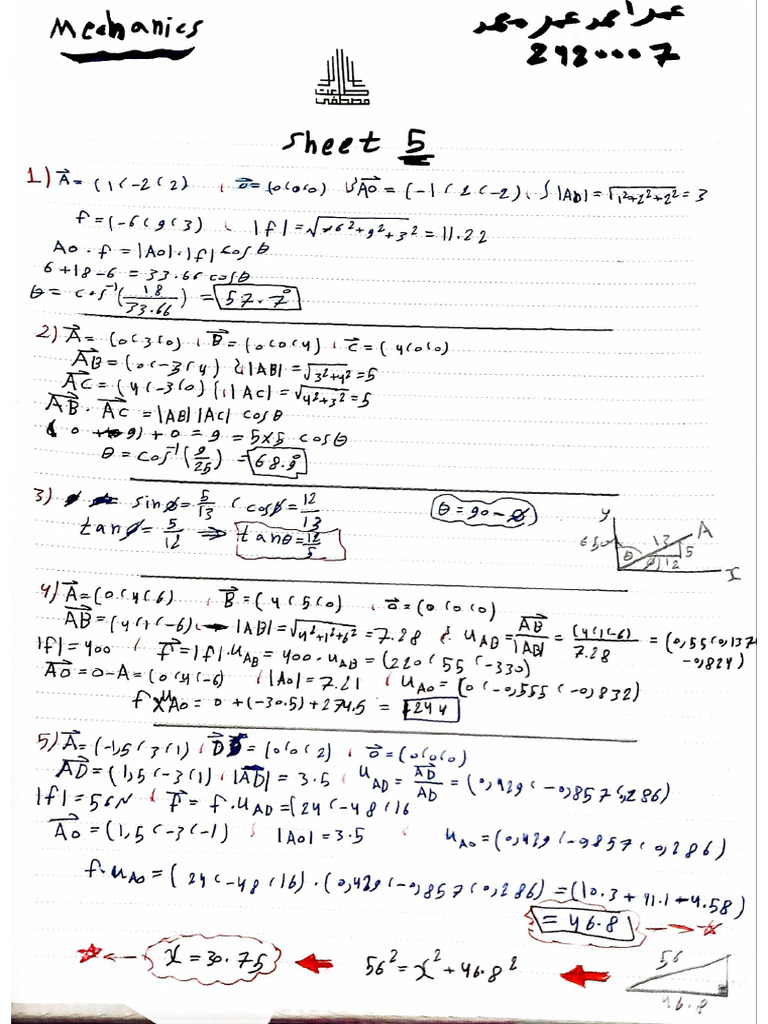 Mechanics
عمر احمد عمر محمد
2420007
Sheet 5
1) A = (1, -2, 2) , o = (0,0,0) , Ao = (-1, 2, -2) , |AO| = √1²+2²+2² = 3
f = (-6, 9, 3) , |f| = √-6²+9²+3² = 11.22
Ao . f = |Ao| . |f| cos θ
6+18-6 = 33.66 cosθ
θ = cos⁻¹(18/33.66) = 57.7°
2) A = (0,3,0) , B = (0,0,4) , C = (4,0,0)
AB = (0, -3, 4) , |AB| = √3²+4² = 5
AC = (4, -3, 0) , |AC| = √4²+3² = 5
AB . AC = |AB| |AC| cosθ
+ 0 = 9 = 5x5 cosθ
θ = cos⁻¹(9/25) = 68.9°
3) sinø = 5/13 , cosø = 12/13 θ = 90 - ø
tanø = 5/12 ⇒ tanθ = 12/5
y 13 A 5 θ ø 12 x
4) A = (0,4,6) , B = (4,5,0) , o = (0,0,0)
AB = (4,1,-6) , |AB| = √4²+1²+6² = 7.28 , uAB = AB/|AB| = (4,1,-6)/7.28 = (0,55, 0,137, -0,824)
|f| = 400 , f = |f| . uAB = 400 . uAB = (220, 55, -330)
AO = O-A = (0, 4, -6) , |AO| = 7.21 , uAO = (0, -0,555, -0,832)
f x uAO = 0 + (-30.5) + 274.5 = 244
5) A = (-1,5, 3, 1) , D = (0,0,2) , o = (0,0,0)
AD = (1,5, -3, 1) , |AD| = 3.5 , uAD = AD/AD = (0,429, -0,857, ,286)
|f| = 56N , f = f . uAD = (24, -48, 16
AO = (1,5, -3, -1) , |AO| = 3.5 , uAO = (0,429, -0,857, 0,286)
f . uAO = (24, -48, 16) . (0,429, -0,857, 0,286) = (10.3 + 41.1 + 4.58)
= 46.8
x = 30.75 56² = x² + 46.8² 56 46.8